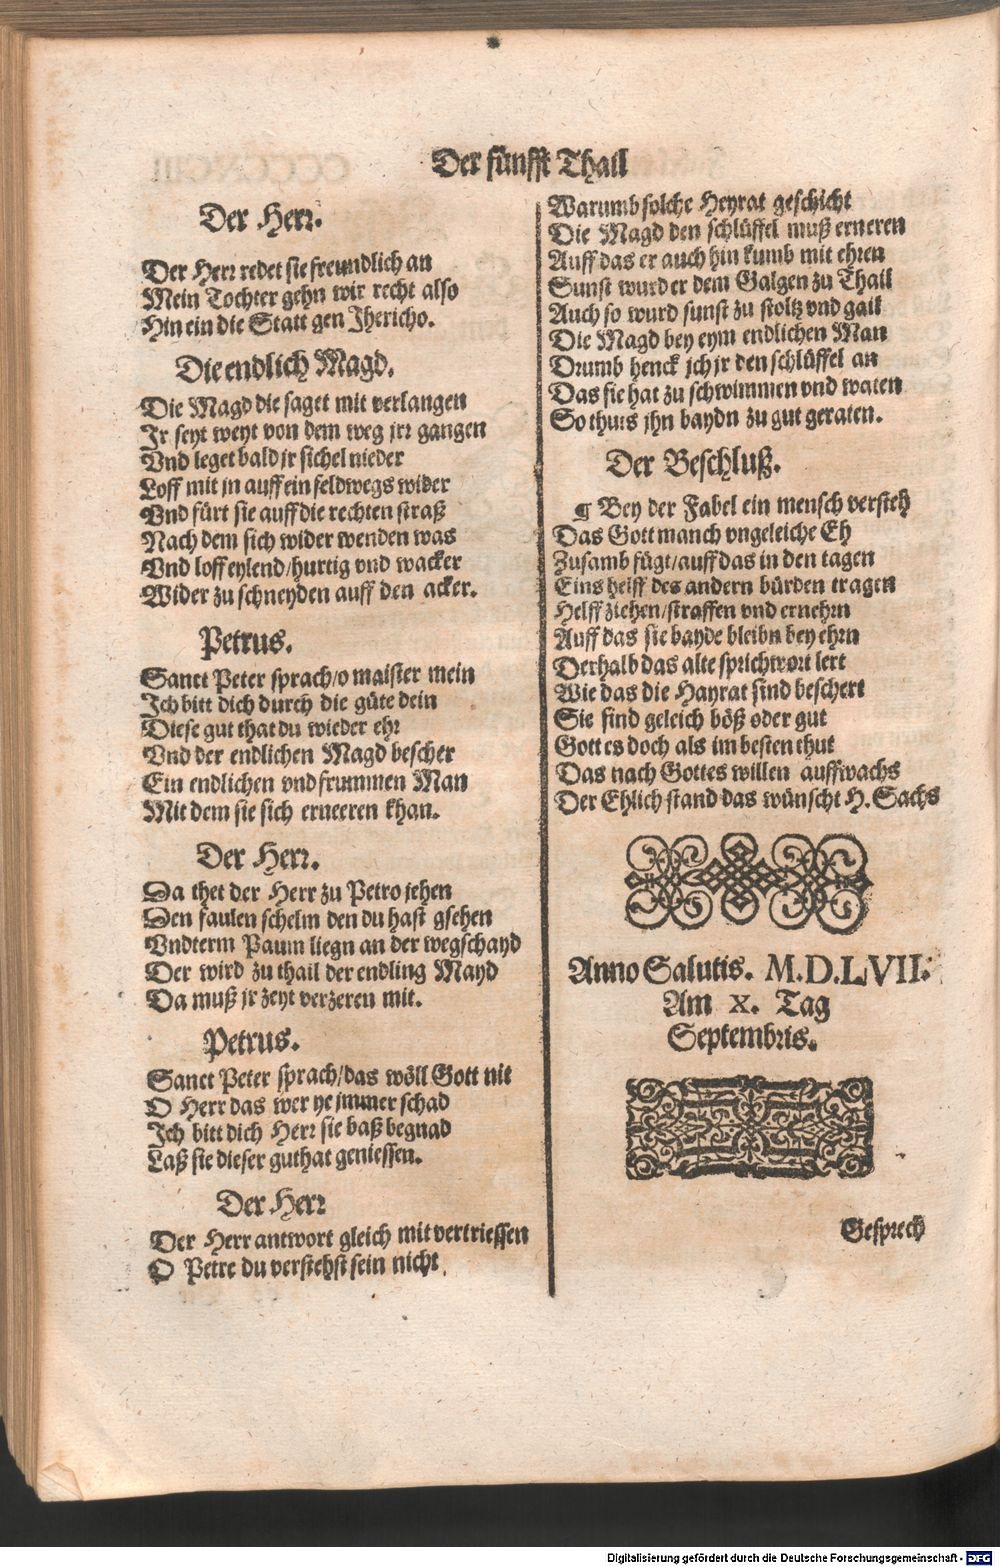 Der fünfft Thail
Der Herr.
Der Herr redet sie freundlich an
Mein Tochter gehn wir recht also
Hin ein die Statt gen Jhericho.
Die endlich Magd.
Die Magd die saget mit verlangen
Ir seyt weyt von dem weg jrr gangen
Vnd leget bald jr sichel nieder
Loff mit in auff ein feldwegs wider
Vnd fürt sie auff die rechten straß
Nach dem sich wider wenden was
Vnd loff eylend/hurtig vnd wacker
Wider zu schneyden auff den acker.
Petrus.
Sanct Peter sprach/o maister mein
Ich bitt dich durch die güte dein
Diese gut that du wieder ehr
Vnd der endlichen Magd bescher
Ein endlichen vnd frummen Man
Mit dem sie sich erneeren khan.
Der Herr.
Da thet der Herr zu Petro jehen
Den faulen schelm den du hast gsehen
Vndterm Paum liegn an der wegschayd
Der wird zu thail der endling Mayd
Da muß jr zeyt verzeren mit.
Petrus.
Sanct Peter sprach/das wöll Gott nit
O Herr das wer ye jmmer schad
Ich bitt dich Herr sie baß begnad
Laß sie dieser guthat geniessen.
Der Herr
Der Herr antwort gleich mit vertriessen
O Petre du verstehst sein nicht
Warumb solche Heyrat geschicht
Die Magd den schlüffel muß erneren
Auff das er auch hin kumb mit ehren
Sunst wurd er dem Galgen zu Thail
Auch so wurd sunst zu stoltz vnd gail
Die Magd bey eym endlichen Man
Drumb henck jch jr den schlüffel an
Das sie hat zu schwimmen vnd waten
So thuts jhn baydn zu gut geraten.
Der Beschluß.
¶ Bey der Fabel ein mensch versteh
Das Gott manch vngeleiche Eh
Zusamb fügt/auff das in den tagen
Eins helff des andern bürden tragen
Helff ziehen/straffen vnd ernehrn
Auff das sie bayde bleibn bey ehrn
Derhalb das alte sprichwort lert
Wie das die Hayrat sind beschert
Sie sind geleich böß oder gut
Gott es doch als im besten thut
Das nach Gottes willen auffwachs
Der Ehlich stand das wünscht H. Sachs
Anno Salutis. M.D.LVII.
Am X. Tag
Septembris.
Gesprech
Digitalisierung gefördert durch die Deutsche Forschungsgemeinschaft - DFG